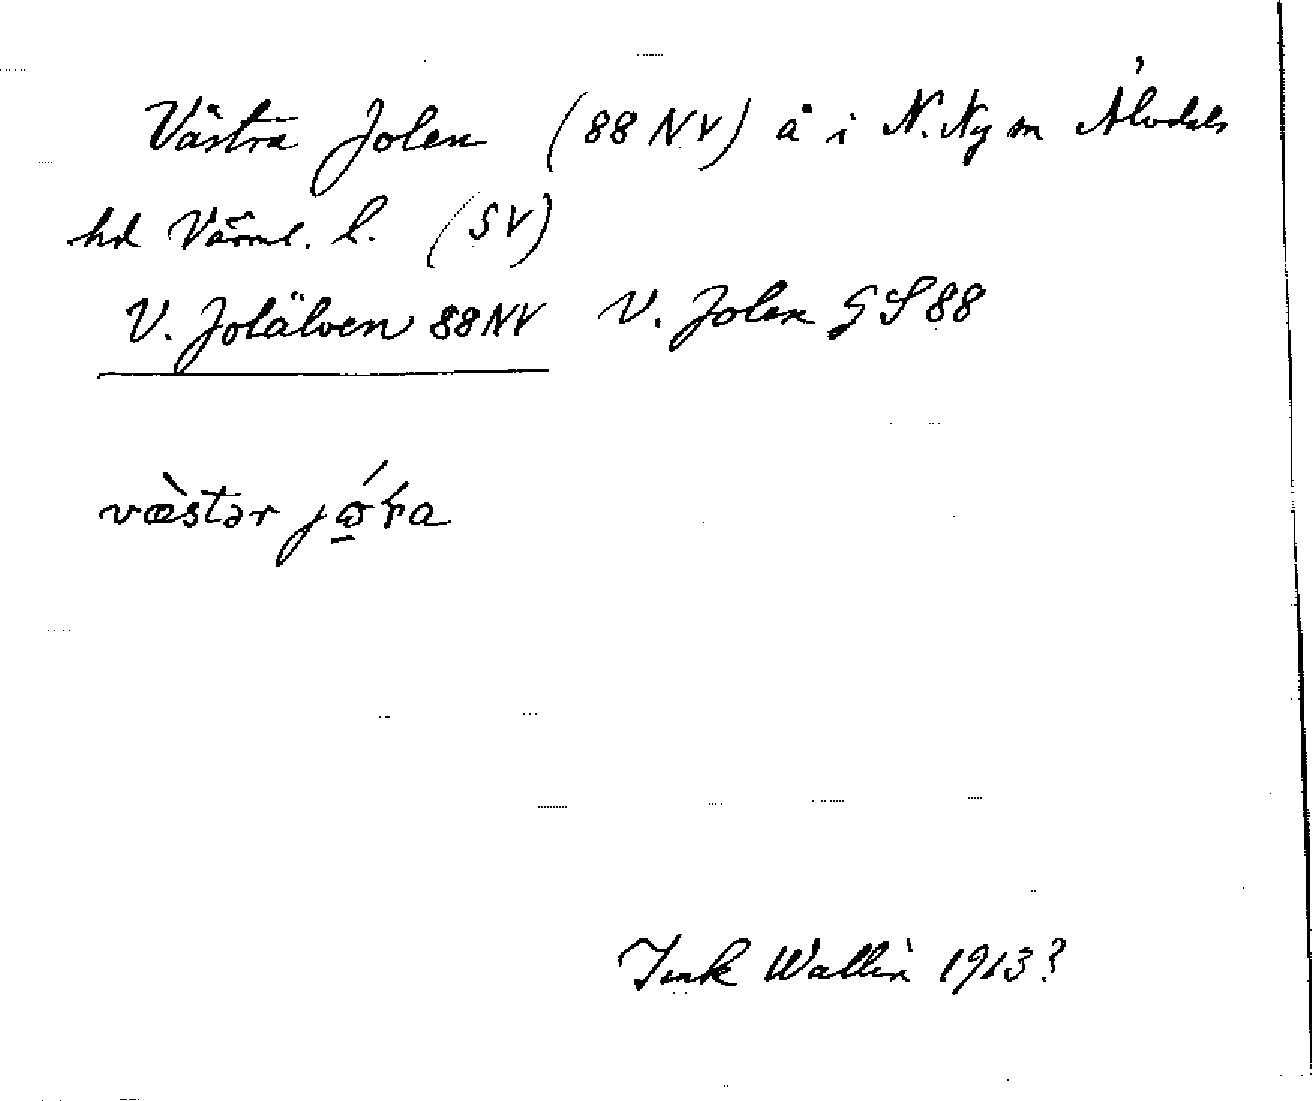 Västra Jolen (88 NV) å i N. Ny sn Älvdals
hd Värml. l. (SV)
V. Jolälven 88NV V. Jolen GS 88
væ̀stər jǿra
Jnk Wallin 1913?